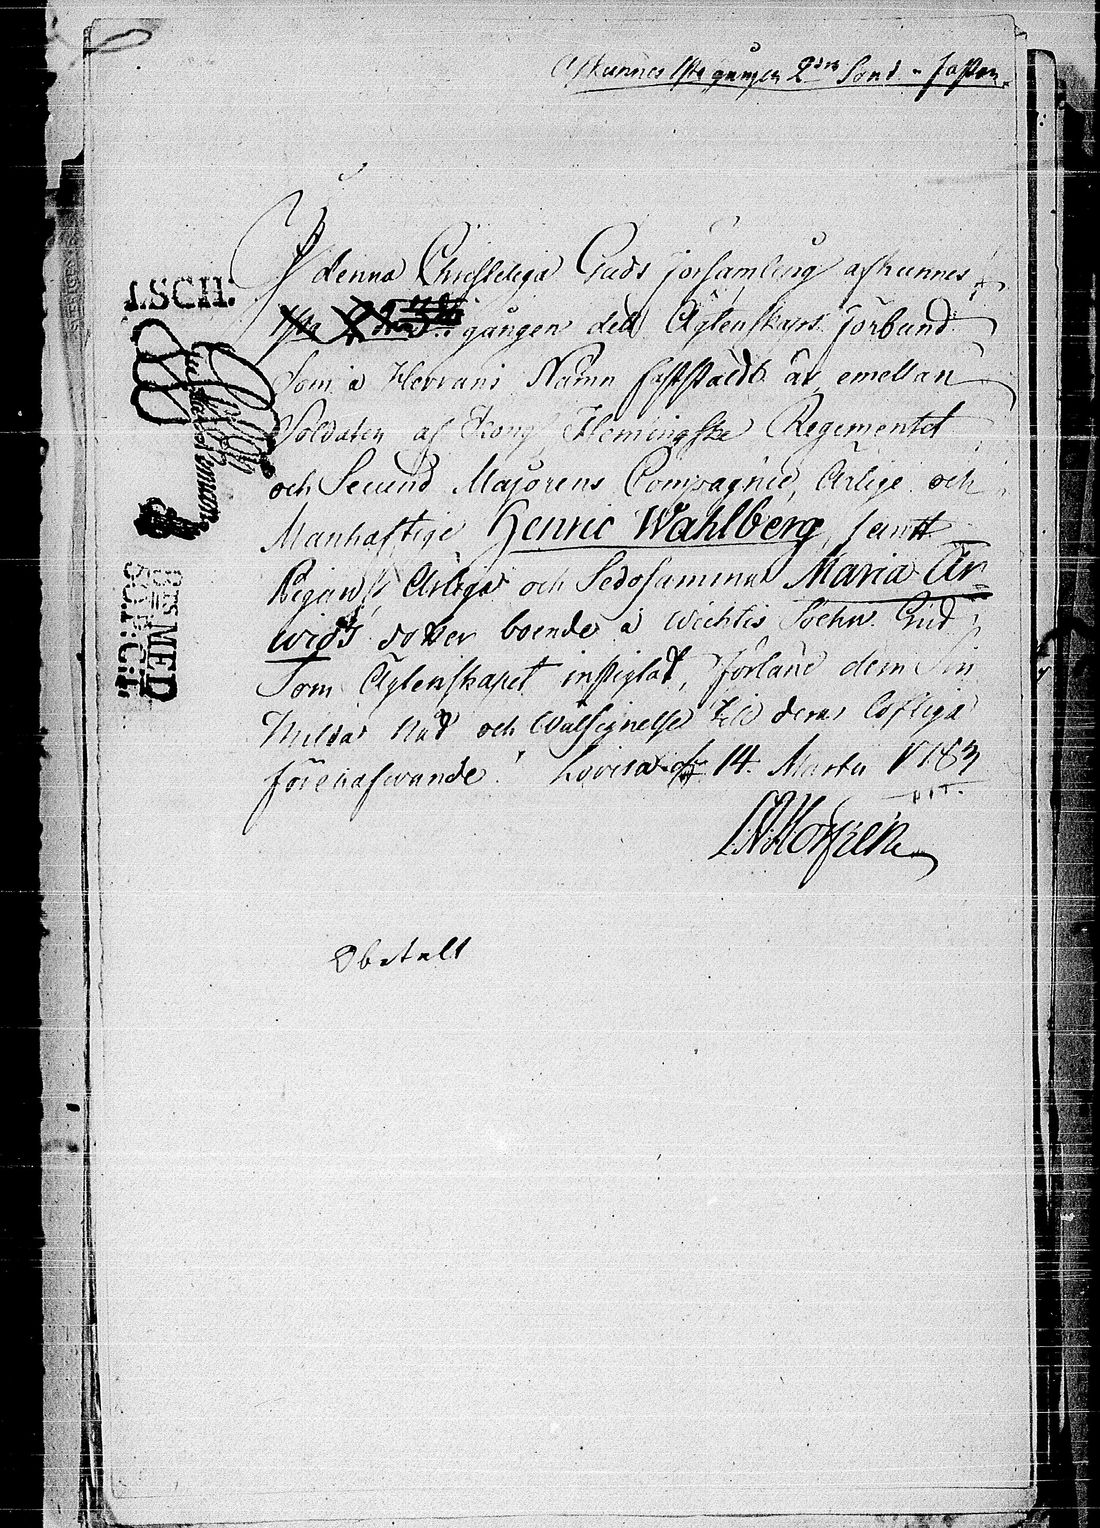 Afkunnes 1sta gången 2dra Sönd. i Fastan.
I denna Christeliga Guds församling afkunnes
1sta 2dra gången det Ägtenskaps förbund
Som i Herrans Namn faststäldt är emellan
Soldaten af Kongl Flemingske Regementet
och Secund Majorens Compagnie, Ärlige och
Manhaftige Henric Wahlberg, samt
Pigan Ärliga och Sedosamma Maria Ar-
wids dotter boende i Wichtis Sochn. Gud
Som Ägtenskapet instigtat, förläne dem Sin
Milda Nåd och Wälsignelse till deras Lofliga
förehafwande! Lovisa d. 14. Martii 1783
Obetalt
1.SCH:
8RTS MED